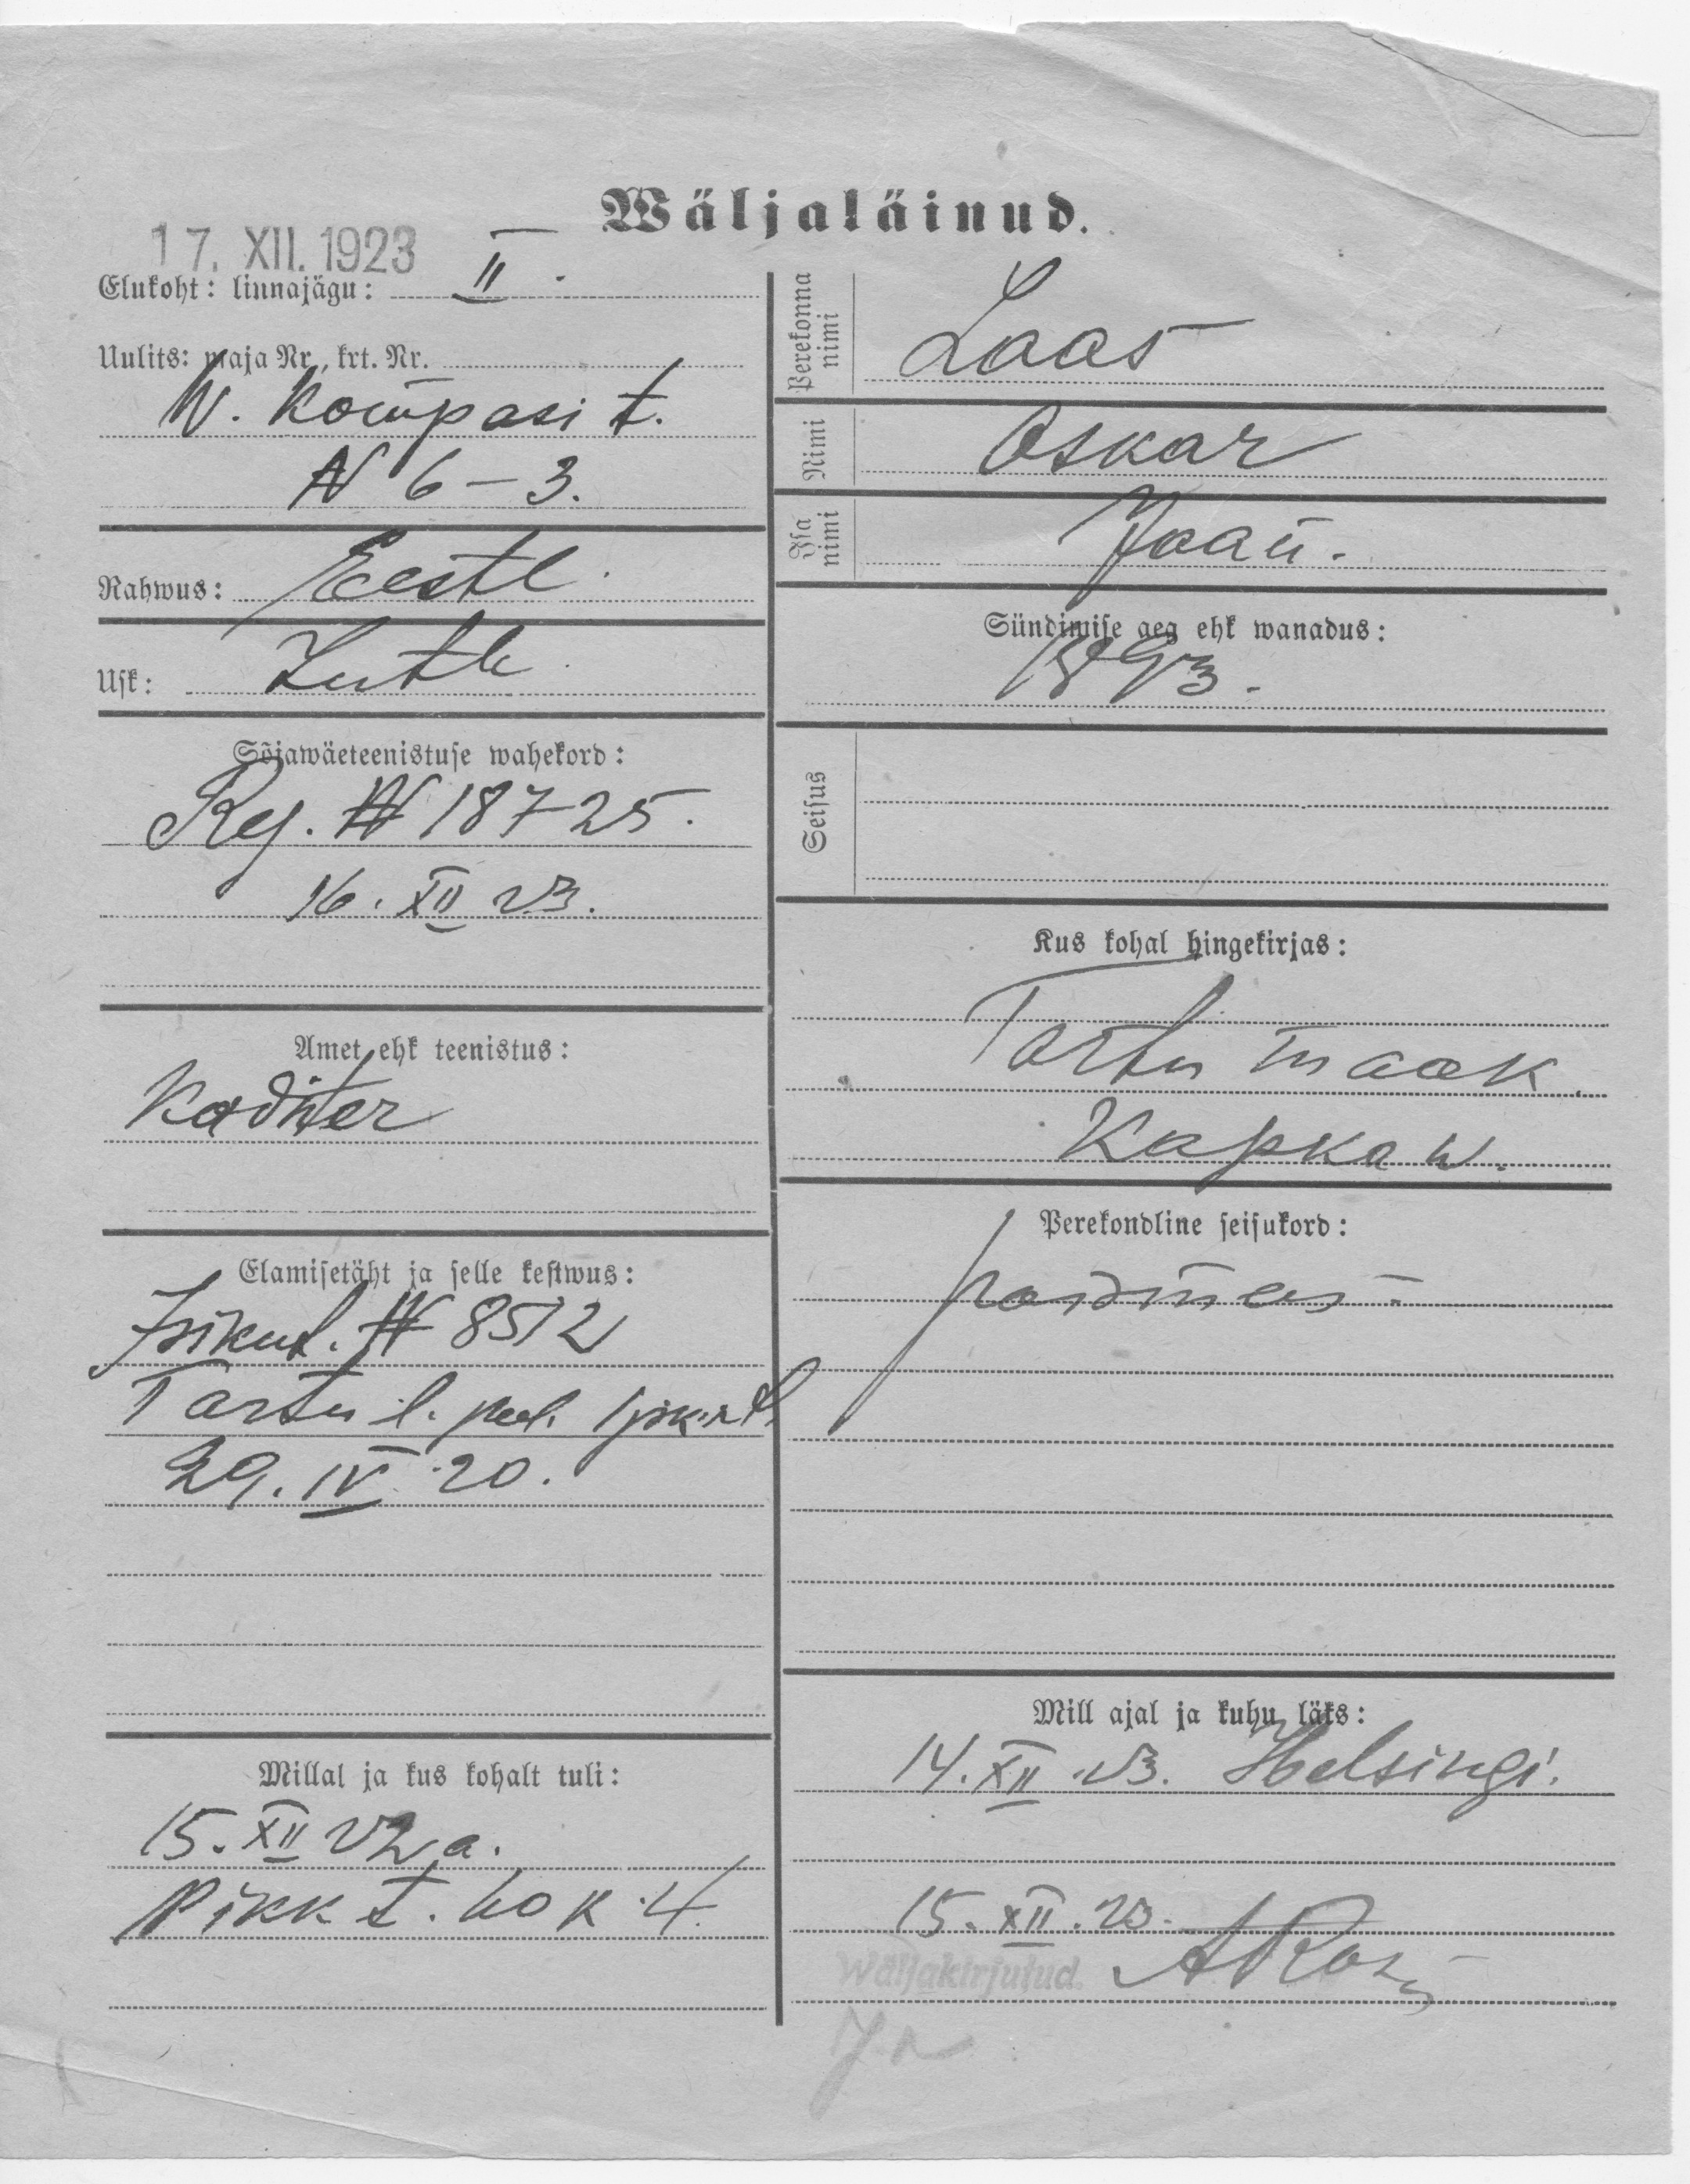 Wäljaläinud.
17. XII. 1923
Elukoht: linnajägu: II.
Uulits: maja Nr., krt. Nr.
W. Kompasi t.
N 6-3.
Rahwus: Eestl.
Usk: Luth.
Sõjawäeteenistuse wahekord:
Reg. N 18725.
16. XII 23.
Amet ehk teenistus:
Elamisetäht ja selle kestwus:
Isikut. N 8512
Tartu l. pol.
29. IV 20.
Millal ja kus kohalt tuli:
15. XII 22 a.
Pikk t. 40 k 4.
Perekonna nimi Laas
Nimi Oskar
Isa nimi Jaan.
Sündimise aeg ehk wanadus:
1893.
Seisus
Kus kohal hingekirjas:
Tartu maak.
w.
Perekondline seisukord:
Mill ajal ja kuhu läks:
14. XII 23. Helsingi.
15. XII. 23.
Wäljakirjutud.